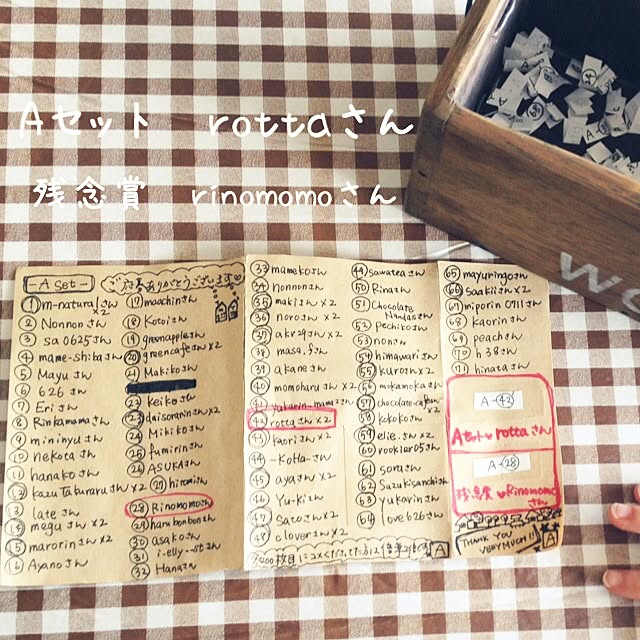 Aセット rottaさん
残念賞 rinomomoさん
- A set -
ご応募ありがとうございます
① m-naturalさん ×2
② Nonnonさん
③ sa0625さん
④ mame-shibaさん
⑤ Mayuさん
⑥ 626さん
⑦ Eriさん
⑧ Rinkamamaさん
⑨ mininyuさん
⑩ nekotaさん
⑪ hanakoさん
⑫ kazutaruraruさん ×2
⑬ lateさん
⑭ meguさん ×2
⑮ marorinさん ×2
⑯ Ayanoさん
⑰ moachinさん
⑱ Kotoiさん
⑲ greenappleさん
⑳ greencafeさん ×2
㉑ Makikoさん
㉒ Keikoさん
㉓ daisorarinさん ×2
㉔ Mikikoさん
㉕ fumirinさん
㉖ ASUKAさん
㉗ hiromiさん
㉘ Rinomomoさん
㉙ harubonbonさん
㉚ asakoさん
㉛ i-elly--stさん
㉜ Hanaさん
㉝ mamekoさん
㉞ nonnonさん
㉟ makiさん ×2
㊱ noroさん ×2
㊲ akr29さん ×2
㊳ masa.fさん
㊴ akaneさん
㊵ momoharuさん ×2
㊶ yukarin-mamaさん
㊷ rottaさん ×2
㊸ kaoriさん ×2
㊹ -Kotta-さん
㊺ ayaさん ×2
㊻ Yu-kiさん
㊼ satoさん ×2
㊽ cloverさん ×2
㊾ sawateaさん
㊿ Rinaさん
51 Chocolate Nandaoさん
52 pechikoさん
53 nonさん
54 himawariさん
55 kuroさん ×2
56 mokamokaさん
57 chocolate-cafeさん ×2
58 kokokoさん
59 elie.さん ×2
60 rooklar05さん
61 soraさん
62 Suzukisanchiさん
63 yukarinさん
64 love626さん
65 mayuringoさん
66 Saakiiさん ×2
67 miporin0711さん
68 kaorinさん
69 peachさん
70 h38さん
71 hinataさん
A-㊷
Aセット♥rottaさん
A-㉘
残念賞♥Rinomomoさん
THANK YOU
VERY MUCH!!
A